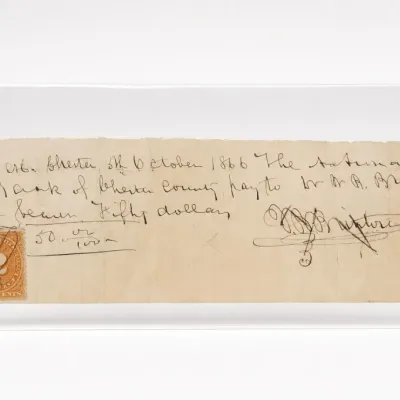 Chester 6th October 1866 The National
Bank of Chester County pay to W W R
bearer Fifty dollars
50.00/100